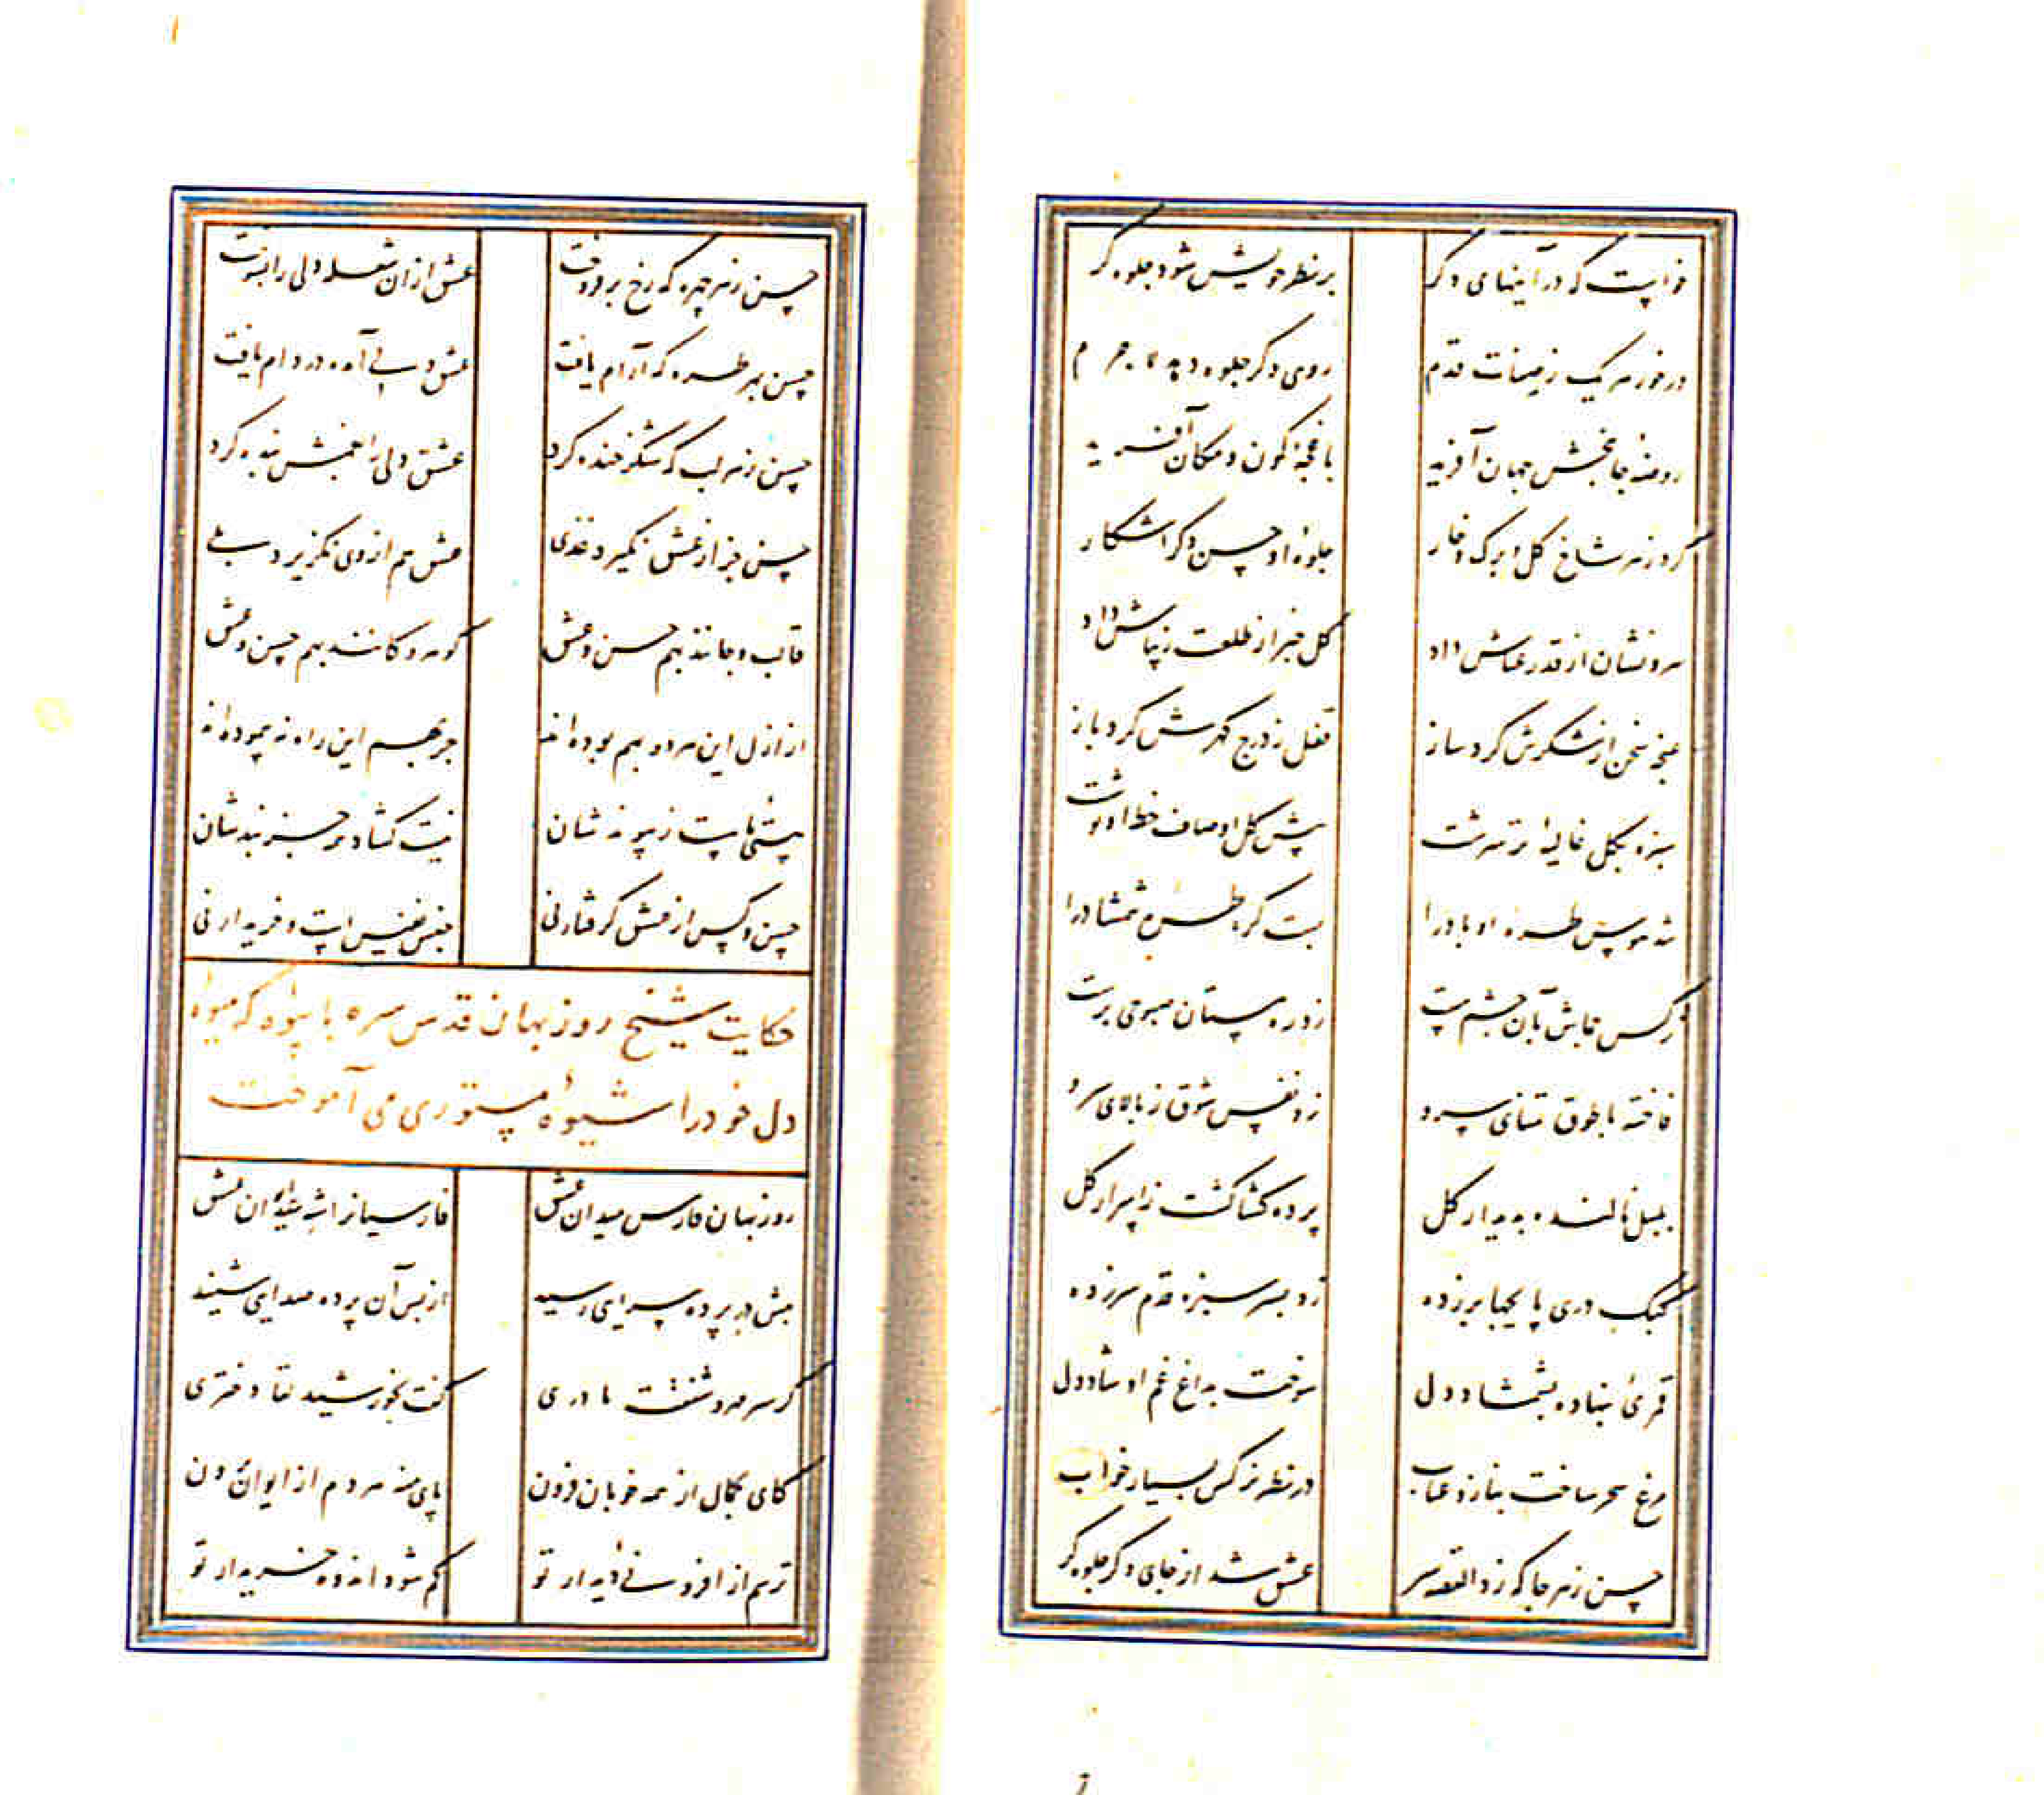 خواست که در آینهای دکر
بر نظر خویش شود جلوه کر
در خور هر یک ز صفات قدم
روی دکر جلوه دهد لا جرم
روضه جانبخش جهان آفرید
باغچه کون و مکان آفرید
کرد ز هر شاخ کل و برک و خار
جلوه او حسن دکر آشکار
سرو نشان از قد رعناش داد
کل خبر از طلعت زیباش داد
غنچه سخن از شکرش کرد ساز
قفل ز درج کهرش کرد باز
سبزه بکل غالیه تر سرشت
پیش کل اوصاف خط او نوشت
شد هوس طره او باد را
بست کره طره شمشاد را
نرکس جماش بآن چشم مست
زد ره مستان صبوحی پرست
فاخته با طوق تمنای سرو
زد نفس شوق ز بالای سرو
بلبل نالنده بدیدار کل
پرده کشا کشت ز اسرار کل
کبک دری پایچها بر زده
زد بسر سبزه قدم سر زده
قمری بنهاده بشمشاد دل
سوخت بداغ غم او شاد دل
مرغ سحر ساخت بناز و عتاب
در نظر نرکس بسیار خواب
حسن ز هر جا که زد القصه سر
عشق شد از جای دکر جلوه کر
حسن ز هر چهره که رخ بر فروخت
عشق از آن شعله دلی را بسوخت
حسن بهر طره که آرام یافت
عشق دلی آمده در دام یافت
حسن ز هر لب که شکر خنده کرد
عشق دلی را بغمش بنده کرد
حسن جز از عشق نکیرد غذی
عشق هم از وی نکزیرد بلی
قالب و جانند بهم حسن و عشق
کوهر و کانند بهم حسن و عشق
از ازل این هر دو بهم بوده‌اند
جز بهم این راه نه پیموده‌اند
هستی ماست ز پیوندشان
نیست کشاد همه جز بندشان
حسن و کس از عشق کرفتار نی
جنس نفیس است و خریدار نی
حکایت شیخ روزبهان قدس سره با بیوه که میوه
دل خود را شیوه مستوری می آموخت
روزبهان فارس میدان عشق
فارسیان را شه ایوان عشق
پیش در پرده سرایی رسید
از پس آن پرده صدایی شنید
کز سر مهر و شفقت مادری
کفت بخورشید لقا دختری
کای بجمال از همه خوبان فزون
پای منه هر دم از ایوان برون
ترسم از افزونی دیدار تو
کم شود اندوه خریدار تو